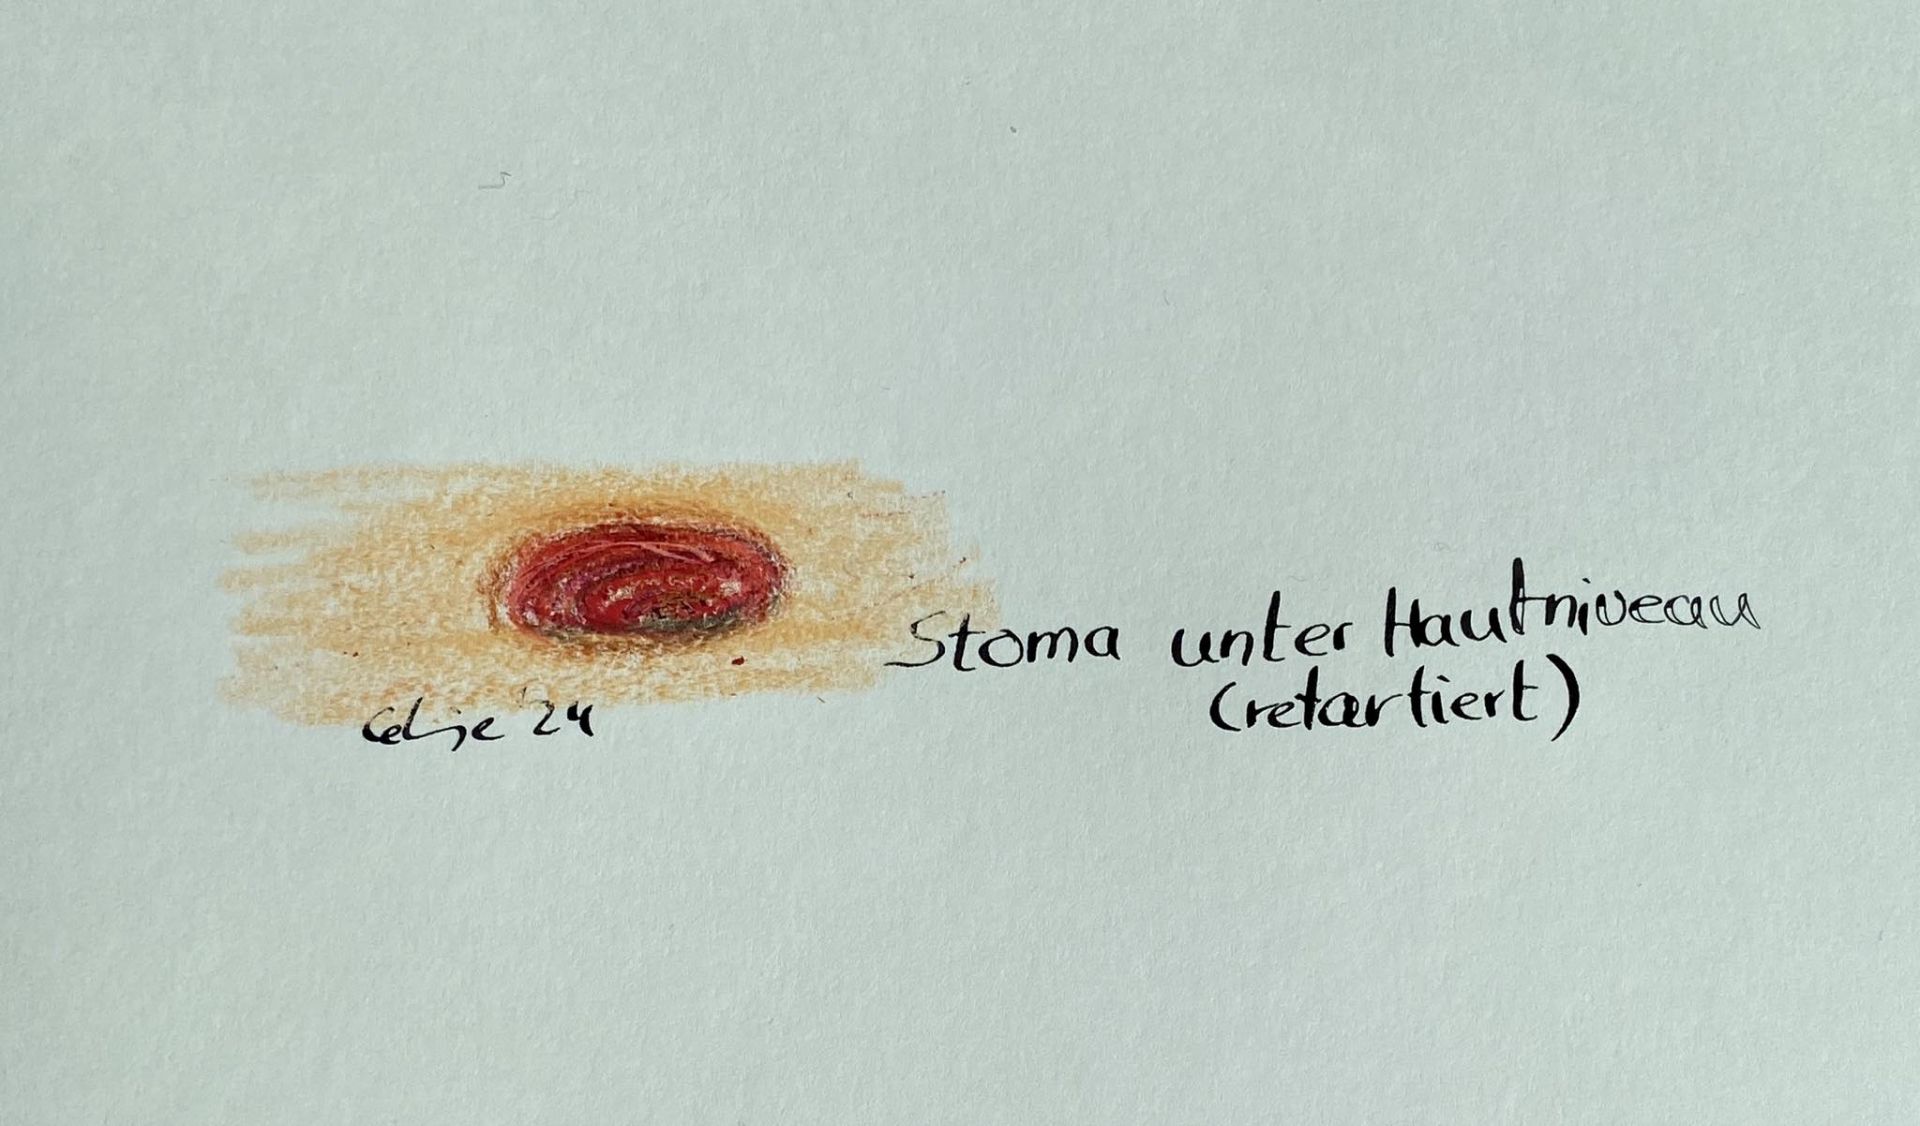 Stoma unter Hautniveau
(retartiert)
'24